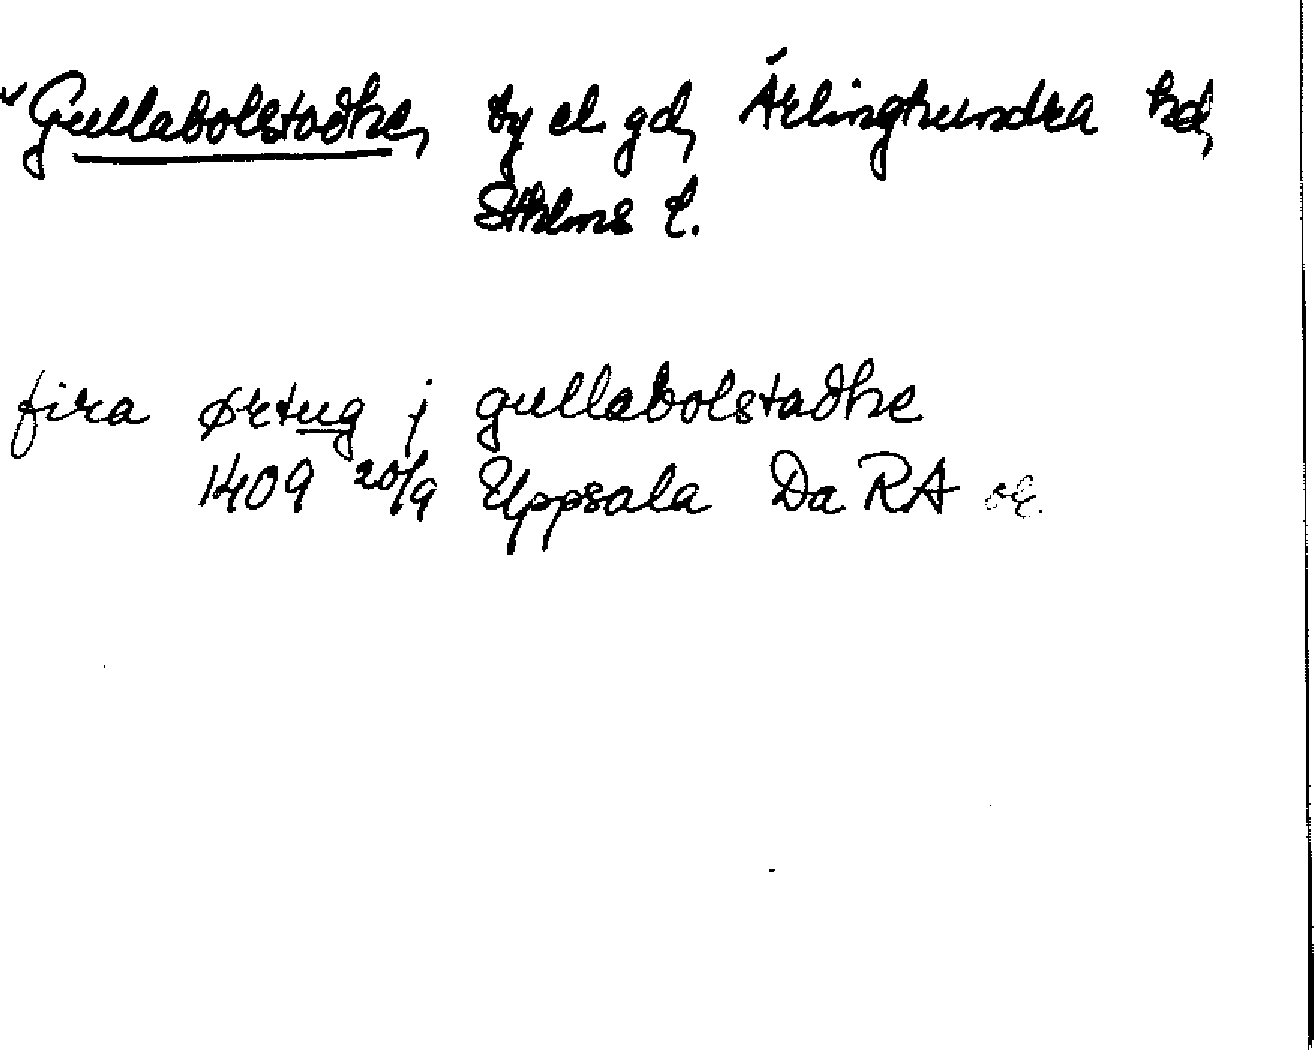 Gullabolstadhe, by el. gd, Ärlinghundra hd,
Sthlms l.
fira ørtug j gullabolstadhe
1409 20/9 Uppsala Da RA or.